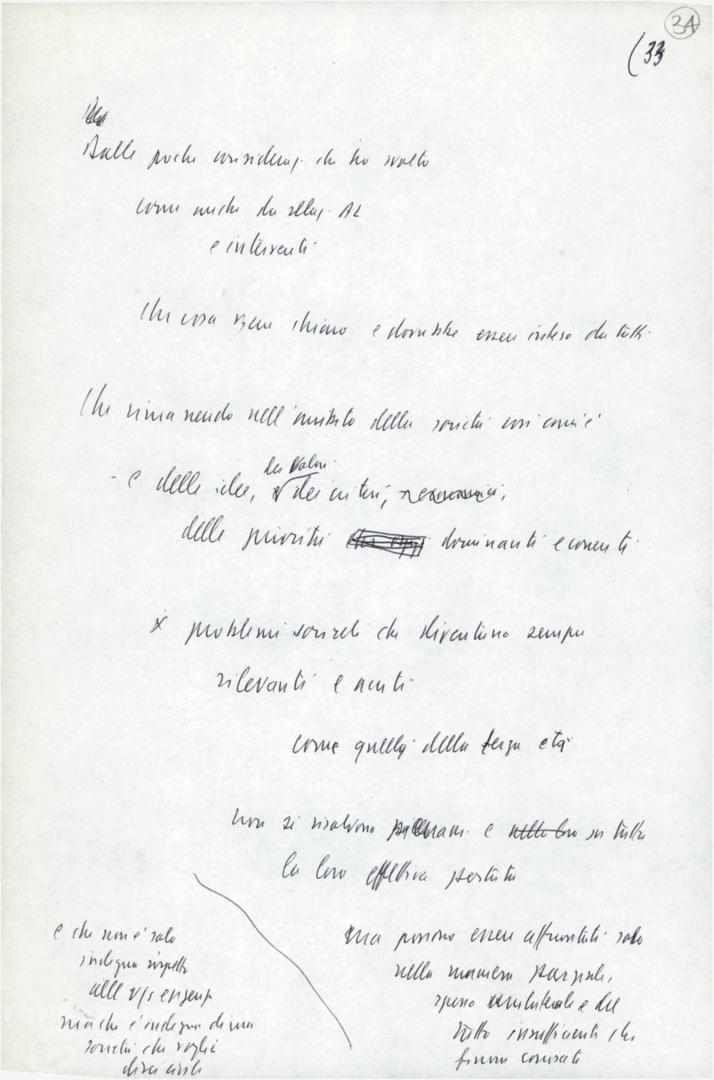 34
(33
Dalle poche consideraz. che ho svolto
come anche da relaz. AL
e interventi
Che cosa viene chiaro e dovrebbe essere inteso da tutti
Che rimanendo nell'ambito della società così com'è
dei valori
- e delle idee, dei criteri,
delle priorità dominanti e correnti
x problemi sociali che diventano sempre
rilevanti e acuti
come quelli della terza età
non si risolvono e nella loro in tutta
la loro effettiva portata
ma possono essere affrontati solo
nella maniera parziale,
spesso unilaterale e del
tutto insufficiente che
finora conosciamo
e che non è solo
indegna rispetto
alle v/s esigenze
ma che è indegna di una
società che voglia
dirsi civile